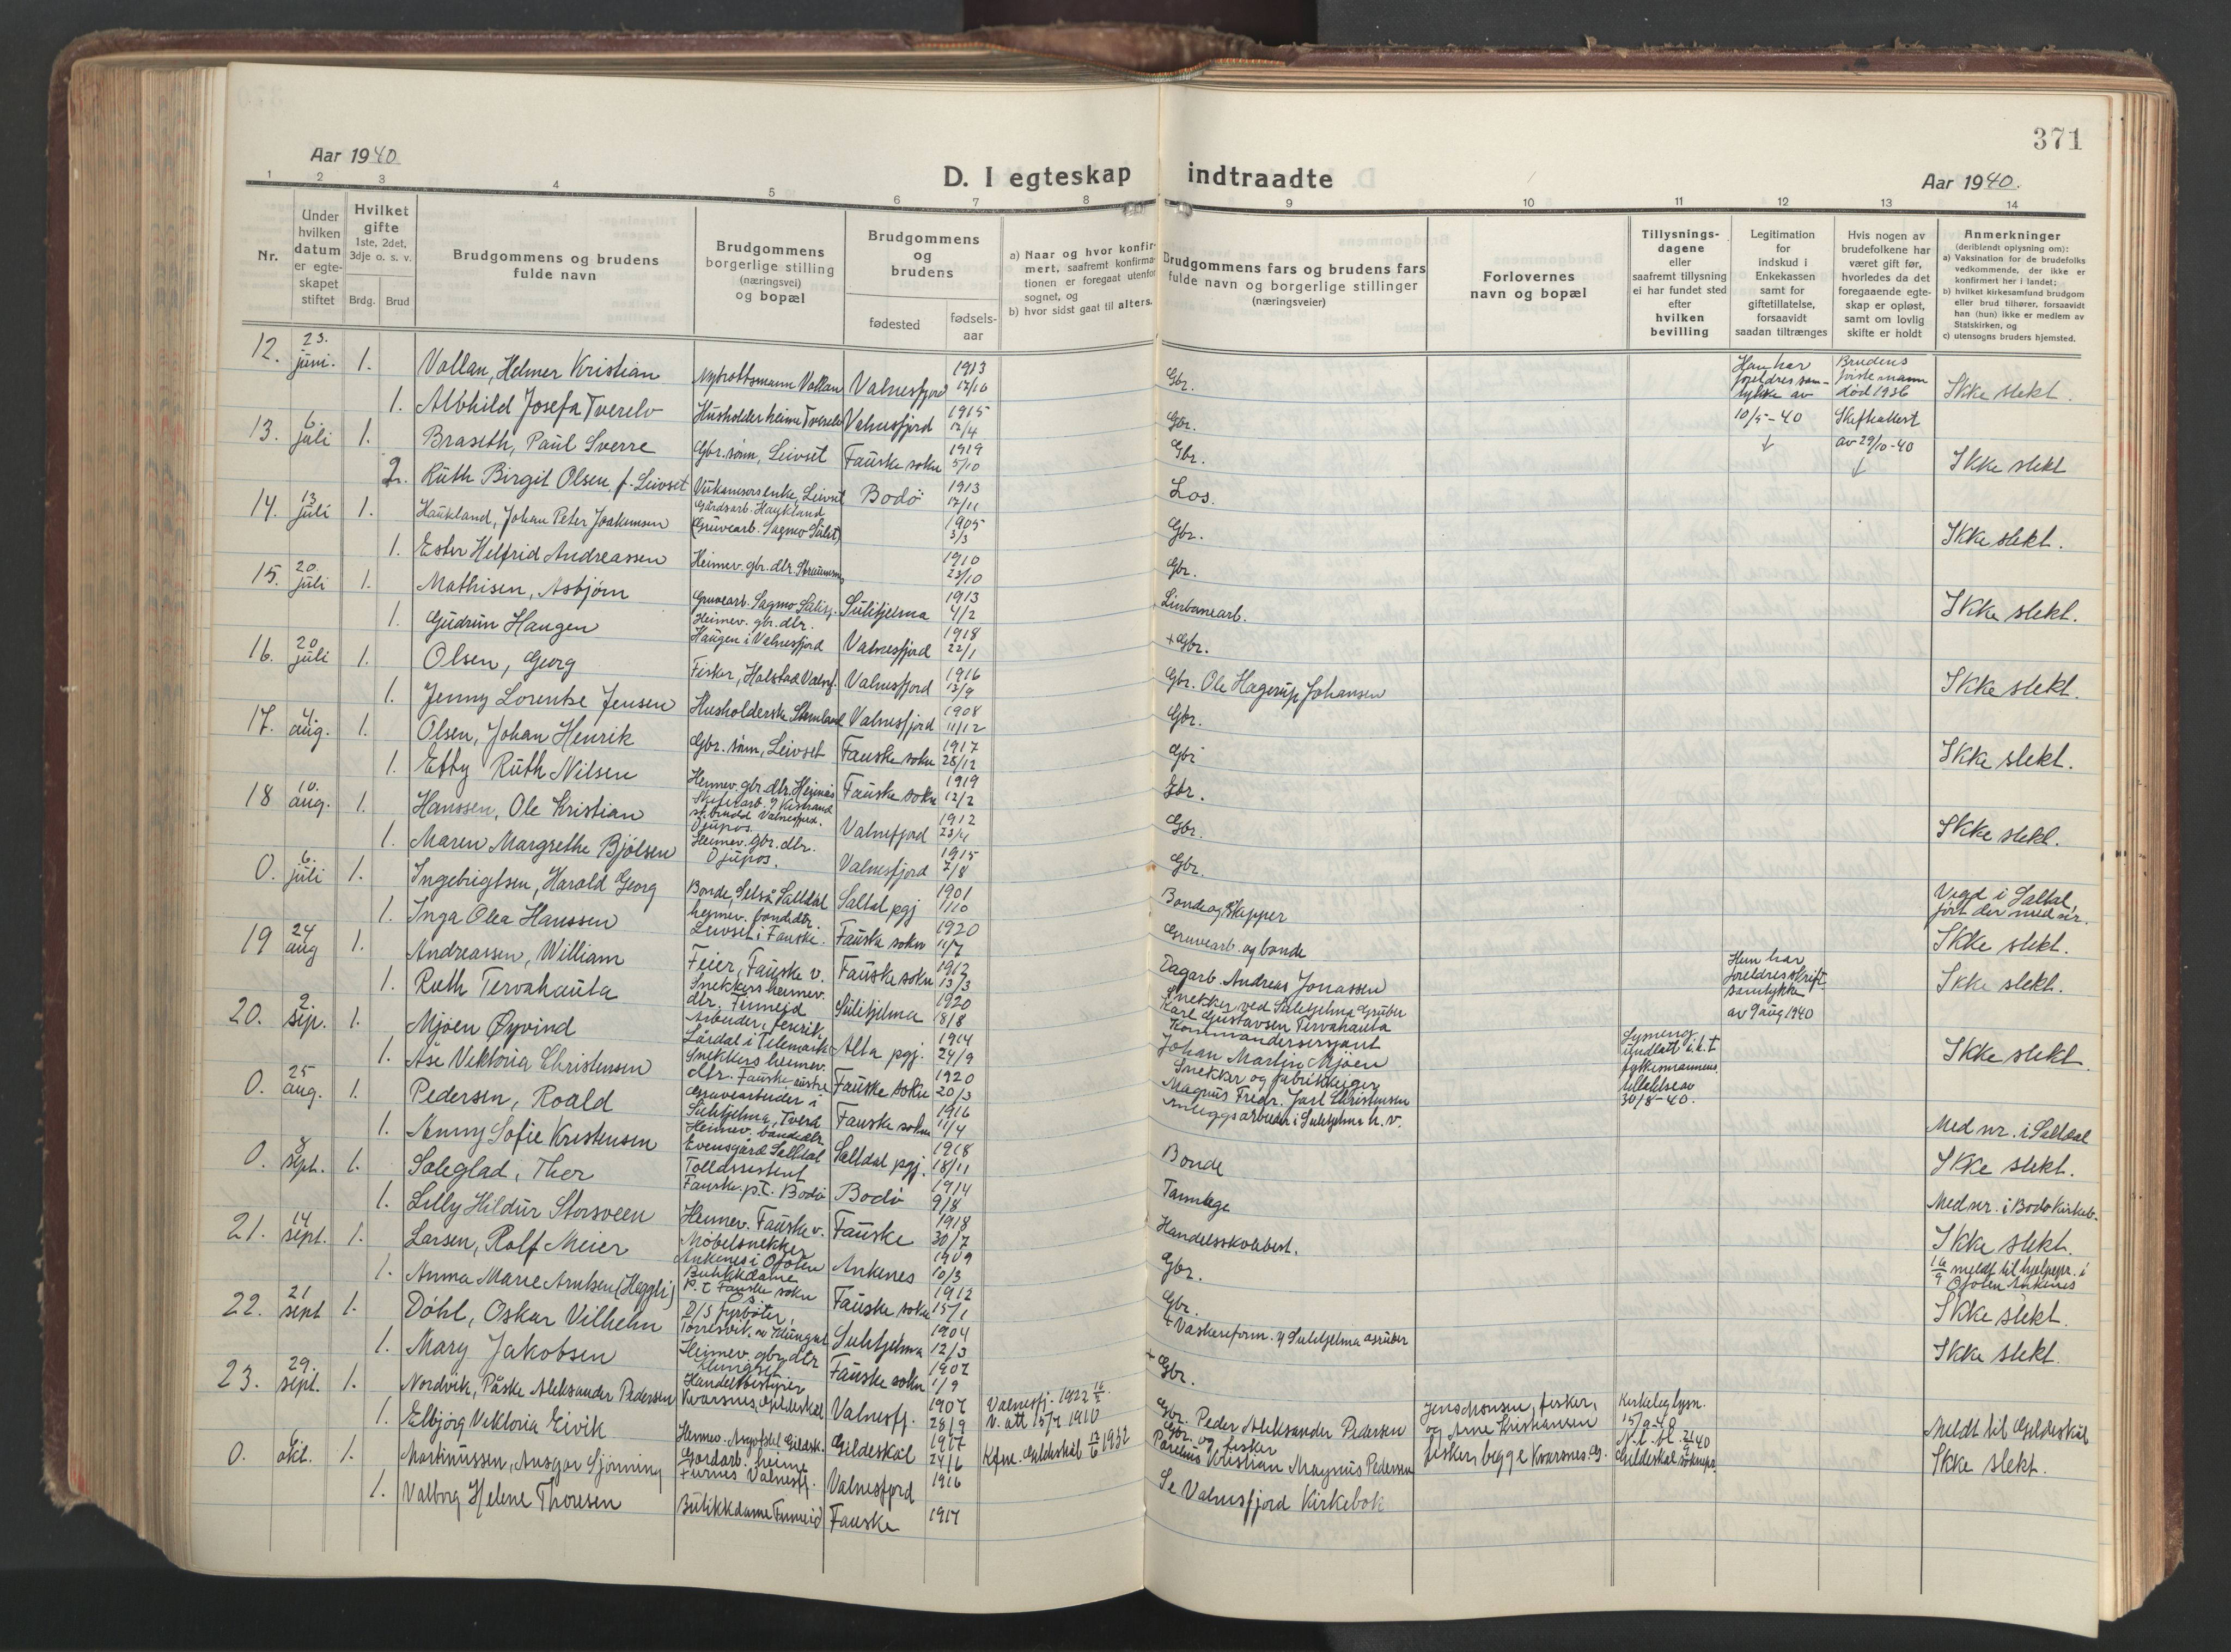 371
Aar 1940
D. I egteskap indtraadte
Aar 1940.
1 2 3 4 5 6 7 8 9 10 11 12 13 14
Nr.
Under hvilken datum er egteskapet stiftet
Hvilket gifte 1ste, 2det, 3dje o. s. v.
Brdg. Brud
Brudgommens og brudens fulde navn
Brudgommens borgerlige stilling (næringsvei) og bopæl
Brudgommens og brudens
fødested
fødselsaar
a) Naar og hvor konfirmert, saafremt konfirmationen er foregaat utenfor sognet, og
b) hvor sidst gaat til alters.
Brudgommens fars og brudens fars fulde navn og borgerlige stillinger (næringsveier)
Forlovernes navn og bopæl
Tillysningsdagene eller saafremt tillysning ei har fundet sted efter hvilken bevilling
Legitimation for indskud i Enkekassen samt for giftetillatelse, forsaavidt saadan tiltrænges
Hvis nogen av brudefolkene har været gift før, hvorledes da det foregaaende egteskap er opløst, samt om lovlig skifte er holdt
Anmerkninger (deriblendt oplysning om):
a) Vaksination for de brudefolks vedkommende, der ikke er konfirmert her i landet;
b) hvilket kirkesamfund brudgom eller brud tilhører, forsaavidt han (hun) ikke er medlem av Statskirken, og
c) utensogns bruders hjemsted.
12. 23. juni. 1. Vallan, Helmer Kristian Nybrottsmann Vallan Valnesfjord 1913 17/10 Gbr. Ikke slekt.
1. Albhild Josefa Tverelv Valnesfjord 1915 12/4 Gbr.
Hun har foreldres samtykke av 10/5-40
Brudens første mann død 1936 Skifteattest av 29/10-40
13. 6. juli 1. Braseth, Paul Sverre Gbr. sønn, Leivset Fauske sokn 1919 5/10 Gbr. Ikke slekt
2. Ruth Birgit Olsen f. Leivset Bodø 1913 17/11 Los.
14. 13 juli 1. Haukland, Johan Peter Joakimsen Gårdsarb. Haukland (Gruvearb. Sagmo Sulit) 1905 3/3 Gbr. Ikke slekt.
1. Ester Helfrid Andreassen Heimev. gbr. dtr. 1910 23/10 Gbr.
15. 20. juli 1. Mathisen, Asbjørn Gruvearb. Sagmo Sulitj. Sulitjelma 1913 4/2 Linbanearb. Ikke slekt.
1. Gudrun Haugen Heimev. gbr. dtr. Haugen i Valnesfjord Valnesfjord 1918 22/1 + Gbr.
16. 20 juli 1. Olsen, Georg Fisker, Halstad Valnf. Valnesfjord 1916 13/9 Gbr. Ole Hagerup Johansen Ikke slekt.
1. Jenny Lorentse Jensen Husholderske Valnesfjord 1908 11/12 Gbr.
17. 4. aug. 1. Olsen, Johan Henrik Gbr. sønn, Leivset Fauske sokn 1917 28/12 Gbr Ikke slekt.
1. Etty Ruth Nilsen Heimev. gbr. dtr. Fauske sokn 1919 12/2 Gbr.
18 10. aug. 1. Hanssen, Ole Kristian Djupos. Valnefjord 1912 23/4 Gbr. Ikke slekt.
1. Maren Margrethe Bjölsen Heimev. gbr. dtr. Djupos. Valnesfjord 1915 7/8 Gbr.
0. 6. juli 1. Ingebrigtsen, Harald Georg Bonde, Selså Saltdal Saltal pgj 1901 1/10 Bonde og Skipper Vigd i Saltal, ført der med nr. Ikke slekt.
1. Inga Olea Hanssen heimev. bondedtr. Leivset i Fauske. Fauske sokn 1920 11/7 Gruvearb. og bonde
19 24 aug 1. Andreassen, William Feier, Fauske v. Fauske sokn 1912 13/3 Dagarb. Andreas Jonassen Ikke slekt.
1. Ruth Tervahauta Snekkers heimev. dtr. Finneid Sulitjelma 1920 18/8 Snekker ved Sulitjelma Gruber Karl Gustavsen Tervahauta
Hun har foreldres skrift. samtykke av 9 aug 1940
20. 2. sep. 1. Mjøen Øyvind Arbeider, Lårdal i Telemark Alta pgj. 1914 24/9 Kommandersersjant Johan Martin Mjøen Ikke slekt.
fylkesmannens tillatelse av 30/8-40.
1. Åse Viktoria Christensen Snekkers heimev. dtr. Fauske østre Fauske sokn 1920 20/3 Snekker og fabrikkeier Magnus Fredr. Jarl Christensen
0. 25 aug. 1. Pedersen, Roald Gruvearbeider i Sulitjelma, Tverå Fauske sokn 1916 11/4 Anleggsarbeider i Sulitjelma h. v. Med nr. i Saltdal
1. Anny Sofie Kristensen Heimev. bondedtr Evensgård Saltdal Saltdal pgj. 1918 18/11 Bonde Ikke slekt.
0. 8 sept. 1. Soleglad, Thor Tollassistent Fauske p.t. Bodø Bodø 1914 9/8 Tannlege Med nr. i Bodø Kirkeb.
1. Lilly Hildur Storsveen Heimev. Fauske v. Fauske 1918 30/7 Handelsskolebest. Ikke slekt.
21. 14 sept. 1. Larsen, Rolf Meier Møbelsnekker Ankenes i Ofoten Ankenes 1909 10/3 Gbr. 16/9 meldt til hjelpepr. i Ofoten Ankenes
1. Anna Marie Arntsen (Heggli) Butikkdame p.t. Fauske sokn Fauske sokn 1912 15/1 Gbr. Ikke slekt.
22. 21 sept 1. Döhl, Oskar Vilhelm D/S fyrbøter, Sulitjelma 1904 12/3 + Vaskereform. v/ Sulitjelma Gruber Ikke slekt.
1. Mary Jakobsen Heimev. gbr. dtr Klungset Fauske sokn 1907 1/9 + Gbr.
23. 29. sept. 1. Nordvik, Påske Aleksander Pedersen Handelsbestyrer Kvarsnes, Gildeskål Valnesfj. 1907 28/9 Valnesfj. 1922 V. att 15/7 1910 Gbr. Peder Aleksander Pedersen Jens Monsen, fisker, og Arne Kristiansen fisker begge Kvarsnes. G. Kirkeleg lysn. 15/9 40 Gildeskål Meldt til Gildeskål
1. Elbjørg Viktoria Eivik Gildeskål 1917 24/6 Kfm. Gildeskål 17/6 1932 Gbr. og fisker Kristian Magnus Pedersen Ikke slekt.
0. 6. okt. 1. Martinussen, Ansgar Hjønning Gårdarb. heime Furnes Valnesfj. Valnesfjord 1916 Se Valnesfjord Kirkebok
1. Valborg Helene Thoresen Butikkdame Finneid Fauske 1917